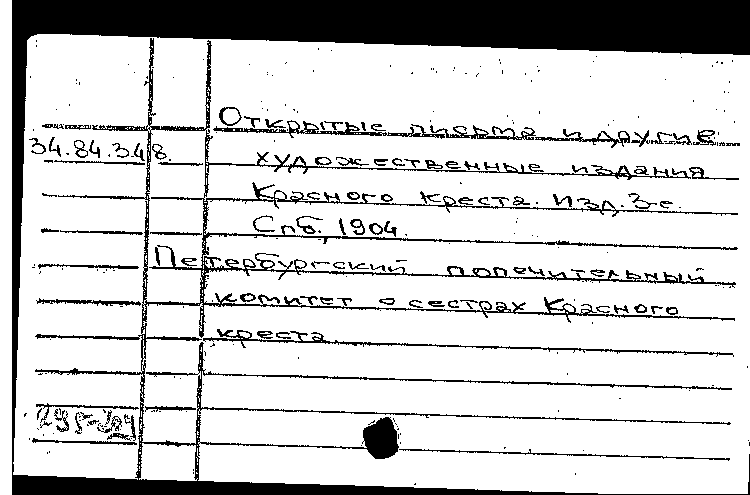 Открытые письма и другие
34.84.348. художественные издания
Красного креста. Изд. 3-е.
Спб., 1904.
Петербургский попечительный
комитет о сестрах Красного
креста